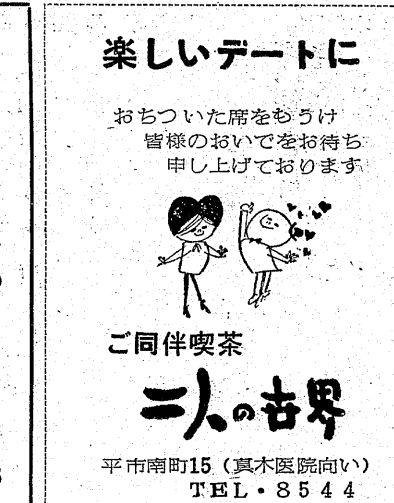 楽しいデートに
おちついた席をもうけ
皆様のおいでをお待ち
申し上げております
ご同伴喫茶
二人の世界
平市南町15（真木医院向い）
TEL・8544